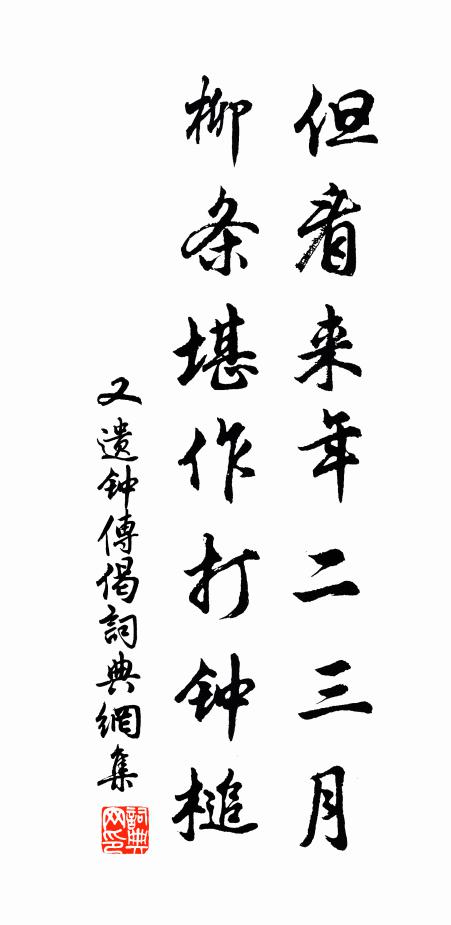 但看来年二三月
柳条堪作打钟槌
又遺钟傳偈詞典網集
詞典网印